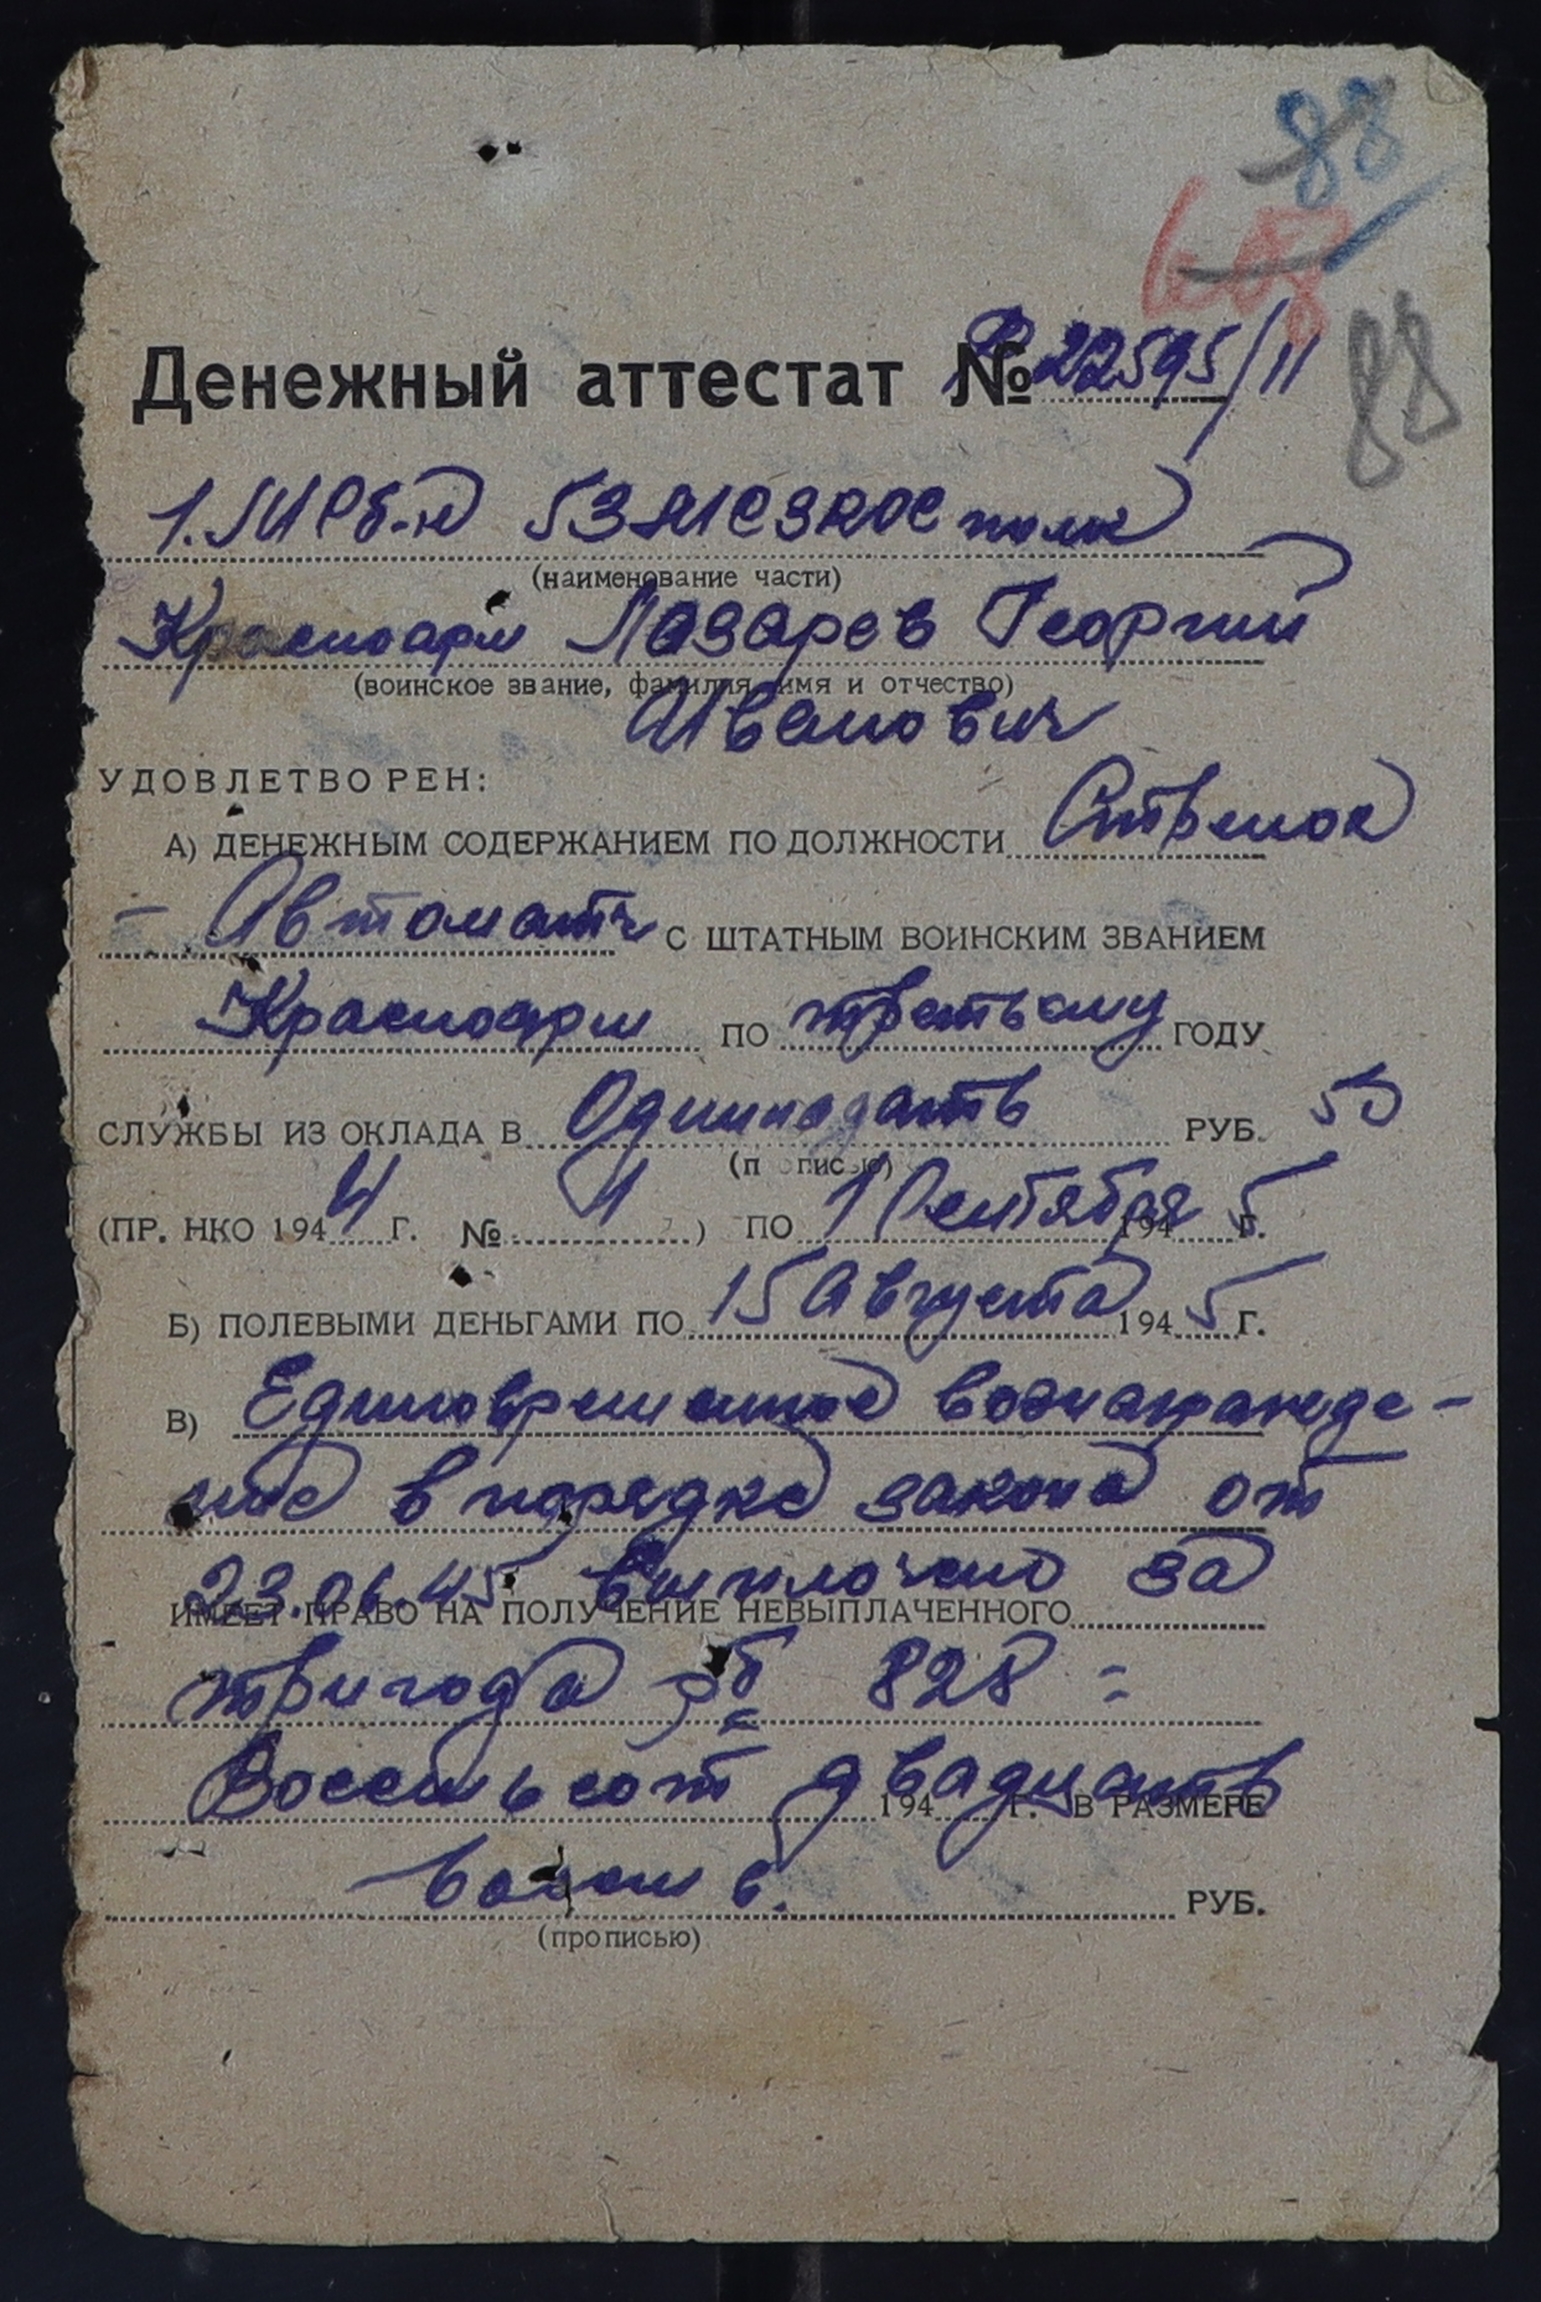 88
88
Денежный аттестат № 22595/11
1. МСб-н полк
(наименование части)
Красноарм Лазарев Георгий
(воинское звание, фамилия, имя и отчество)
Иванович
УДОВЛЕТВОРЕН:
А) ДЕНЕЖНЫМ СОДЕРЖАНИЕМ ПО ДОЛЖНОСТИ Стрелок
- Автоматч С ШТАТНЫМ ВОИНСКИМ ЗВАНИЕМ
Красноарм ПО третьему ГОДУ
СЛУЖБЫ ИЗ ОКЛАДА В Одиннадцать РУБ. 50
(прописью)
(ПР. НКО 1944 г. № ) ПО 1 Сентября 1945 г.
Б) ПОЛЕВЫМИ ДЕНЬГАМИ ПО 15 Августа 1945 г.
В) Единовременное вознагражде-
ние в порядке закона от
23.06.45 выплачено за
ИМЕЕТ ПРАВО НА ПОЛУЧЕНИЕ НЕВЫПЛАЧЕННОГО
три года рб 828 =
Восемьсот двадцать
194 Г. В РАЗМЕРЕ
восемь. РУБ.
(прописью)